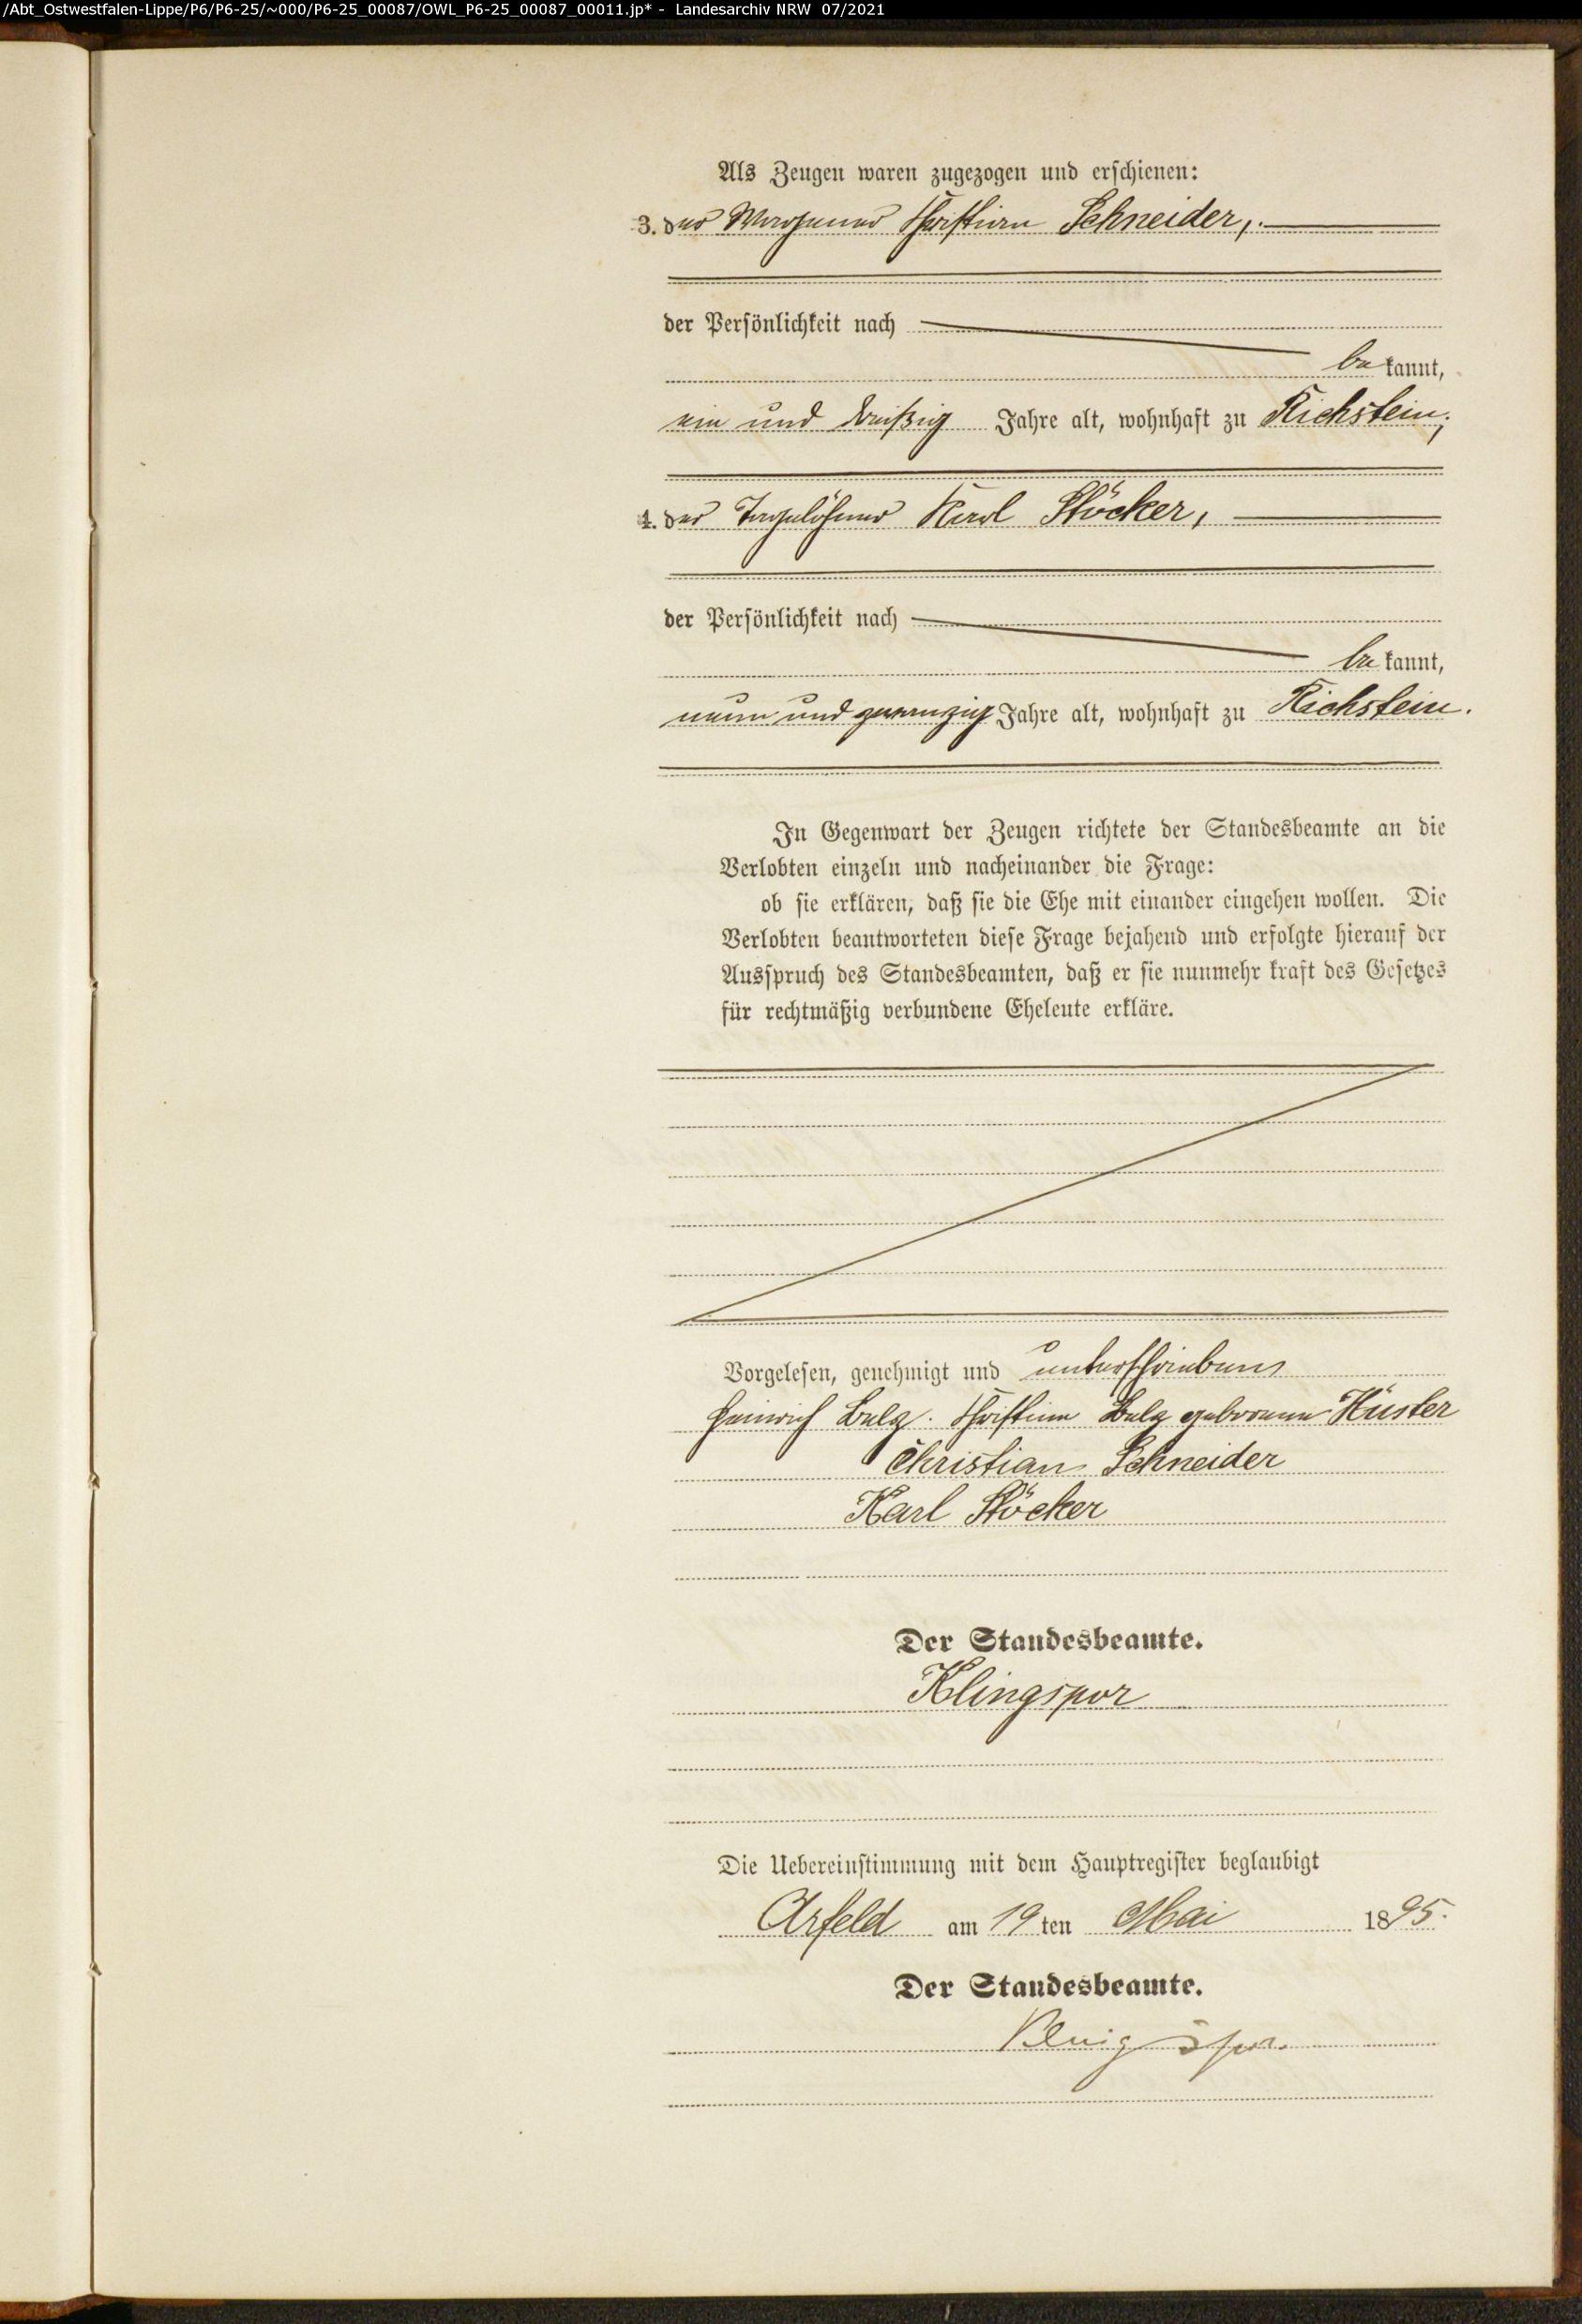 /Abt_Ostwestfalen-Lippe/P6/P6-25/~000/P6-25_00087/OWL_P6-25_00087_00011.jp* - Landesarchiv NRW 07/2021
Als Zeugen waren zugezogen und erschienen:
3. der Wagener Christian Schneider,
der Persönlichkeit nach
be kannt,
ein und dreißig Jahre alt, wohnhaft zu Richstein;
4. der Tagelöhner Karl Stöcker,
der Persönlichkeit nach
be kannt,
neun und zwanzig Jahre alt, wohnhaft zu Richstein.
In Gegenwart der Zeugen richtete der Standesbeamte an die
Verlobten einzeln und nacheinander die Frage:
ob sie erklären, daß sie die Ehe mit einander eingehen wollen. Die
Verlobten beantworteten diese Frage bejahend und erfolgte hierauf der
Ausspruch des Standesbeamten, daß er sie nunmehr kraft des Gesetzes
für rechtmäßig verbundene Eheleute erkläre.
Vorgelesen, genehmigt und unterschrieben
Heinrich Belz. Christine Belz geborene Hüster
Christian Schneider
Karl Stöcker
Der Standesbeamte.
Klingspor
Die Uebereinstimmung mit dem Hauptregister beglaubigt
Arfeld am 19 ten Mai 1895.
Der Standesbeamte.
Klingspor.